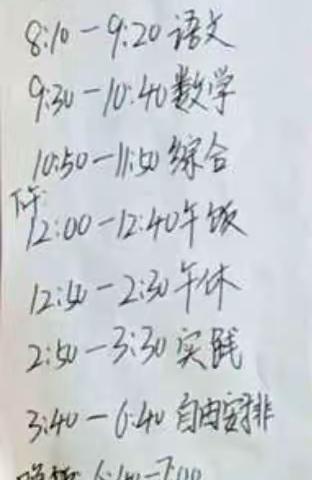 8:10-9:20 语文
9:30-10:40 数学
10:50-11:50 综合
下午
12:00-12:40 午饭
12:40-2:30 午休
2:50-3:30 实践
3:40-6:40 自由安排
6:40-7:00